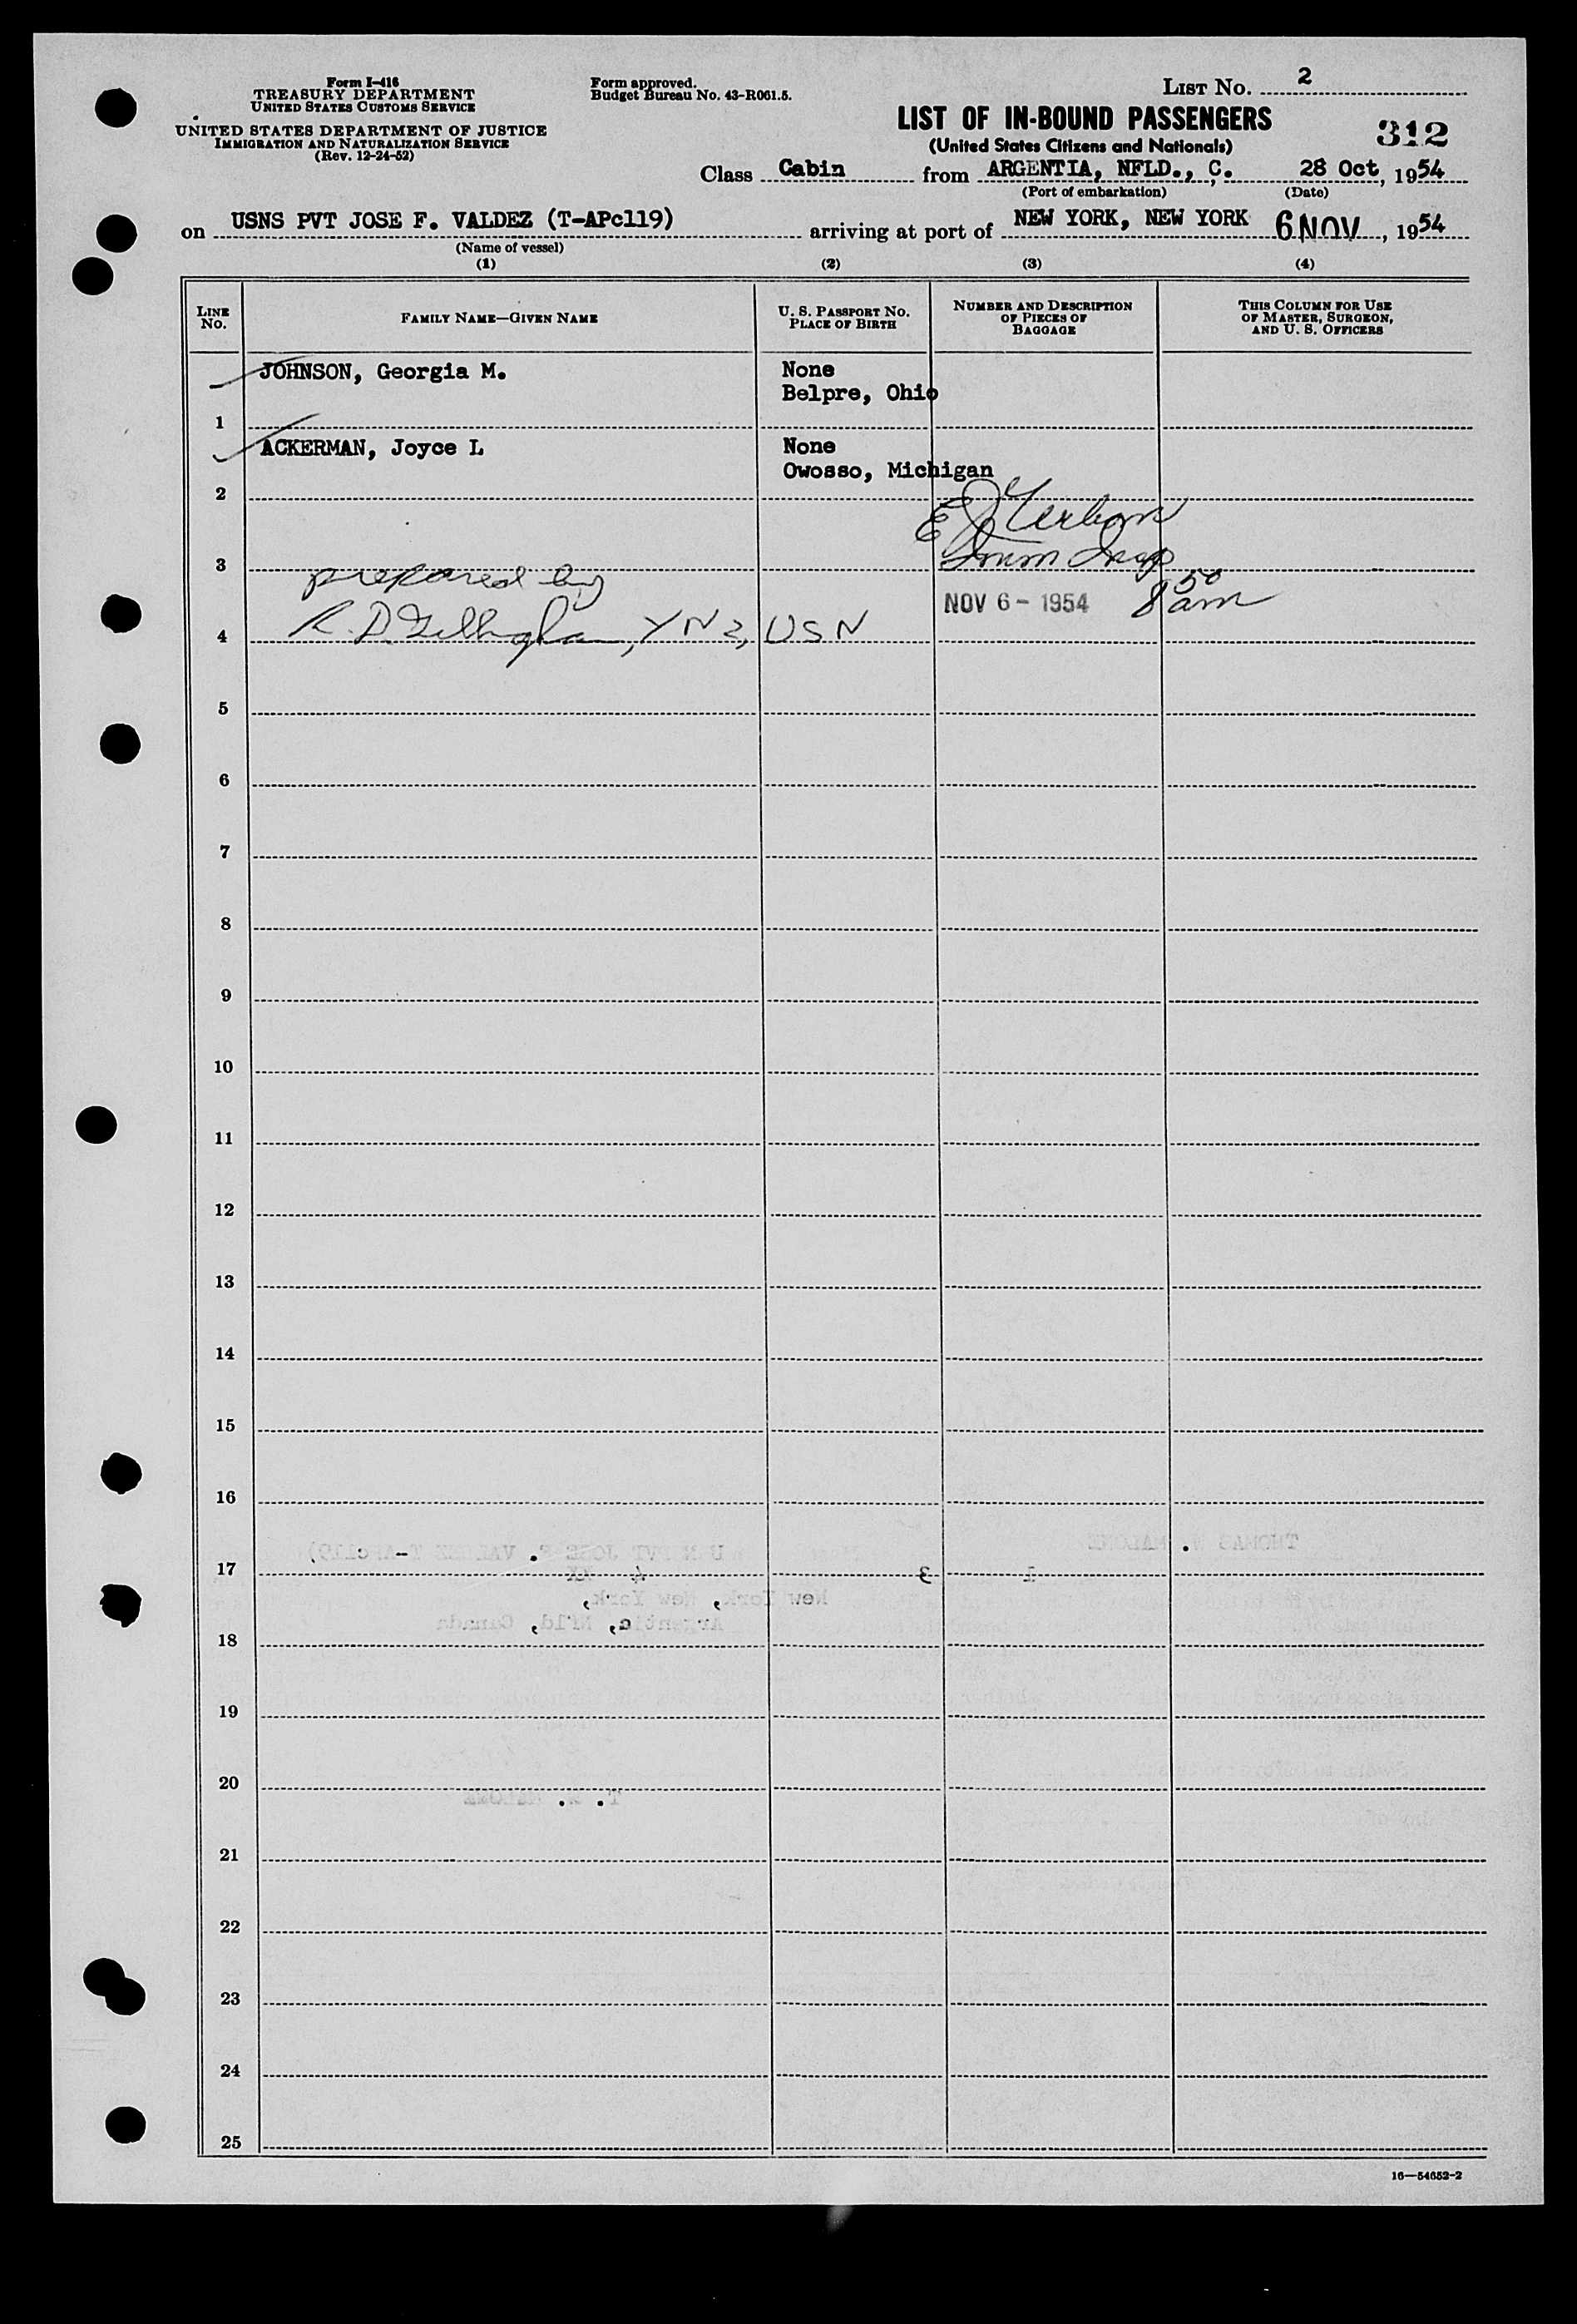 Form I-416
TREASURY DEPARTMENT
UNITED STATES CUSTOMS SERVICE
UNITED STATES DEPARTMENT OF JUSTICE
IMMIGRATION AND NATURALIZATION SERVICE
(Rev. 12-24-52)
Form approved.
Budget Bureau No. 43-R061.5.
LIST No. 2
LIST OF IN-BOUND PASSENGERS
(United States Citizens and Nationals)
312
Class Cabin from ARGENTIA, NFLD., C. 28 Oct, 1954
(Port of embarkation) (Date)
on USNS PVT JOSE F. VALDEZ (T-APc119) arriving at port of NEW YORK, NEW YORK 6 NOV, 1954
(Name of vessel)
(1) (2) (3) (4)
LINE No.
FAMILY NAME—GIVEN NAME
U. S. PASSPORT NO.
PLACE OF BIRTH
NUMBER AND DESCRIPTION
OF PIECES OF
BAGGAGE
THIS COLUMN FOR USE
OF MASTER, SURGEON,
AND U. S. OFFICERS
JOHNSON, Georgia M. None
Belpre, Ohio
1
ACKERMAN, Joyce L None
Owosso, Michigan
2
3
prepared by
NOV 6 - 1954 8 50 am
4 R. D. YN2, USN
5
6
7
8
9
10
11
12
13
14
15
16
17
18
19
20
21
22
23
24
25
16—54652-2